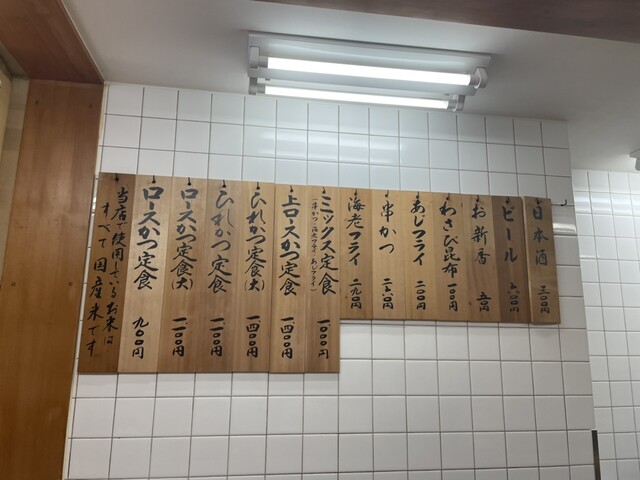 日本酒 三〇〇円
ビール 六〇〇円
お新香 五〇円
わさび昆布 一〇〇円
あじフライ 二〇〇円
串かつ 二五〇円
海老フライ 二九〇円
ミックス定食 一、〇〇〇円
(串かつ・海老フライ・あじフライ)
上ロースかつ定食 一、四〇〇円
ひれかつ定食(大) 一、四〇〇円
ひれかつ定食 一、一〇〇円
ロースかつ定食(大) 一、一〇〇円
ロースかつ定食 九〇〇円
当店で使用しているお米は
すべて国産米です